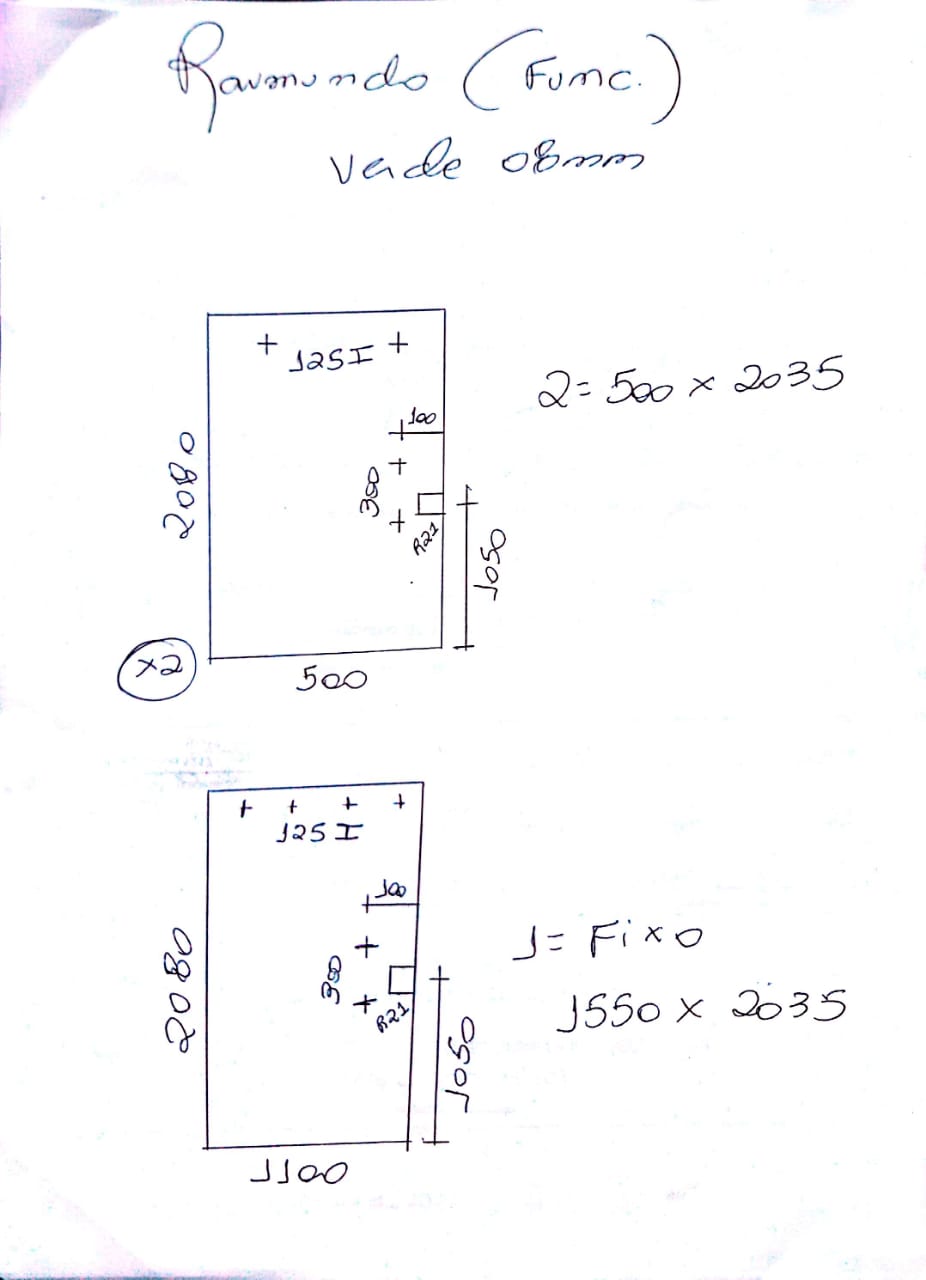 Raimundo (Func.)
Verde 08mm
125I
100
2080
300
R21
1050
x2
500
2= 500 x 2035
125 I
100
2080
300
R21
1050
1100
1= Fixo
1550 x 2035